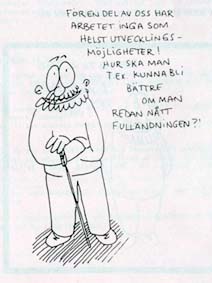 FÖR EN DEL AV OSS HAR
ARBETET INGA SOM
HELST UTVECKLINGS-
MÖJLIGHETER!
HUR SKA MAN
T.EX. KUNNA BLI
BÄTTRE
OM MAN
REDAN NÅTT
FULLÄNDNINGEN?!